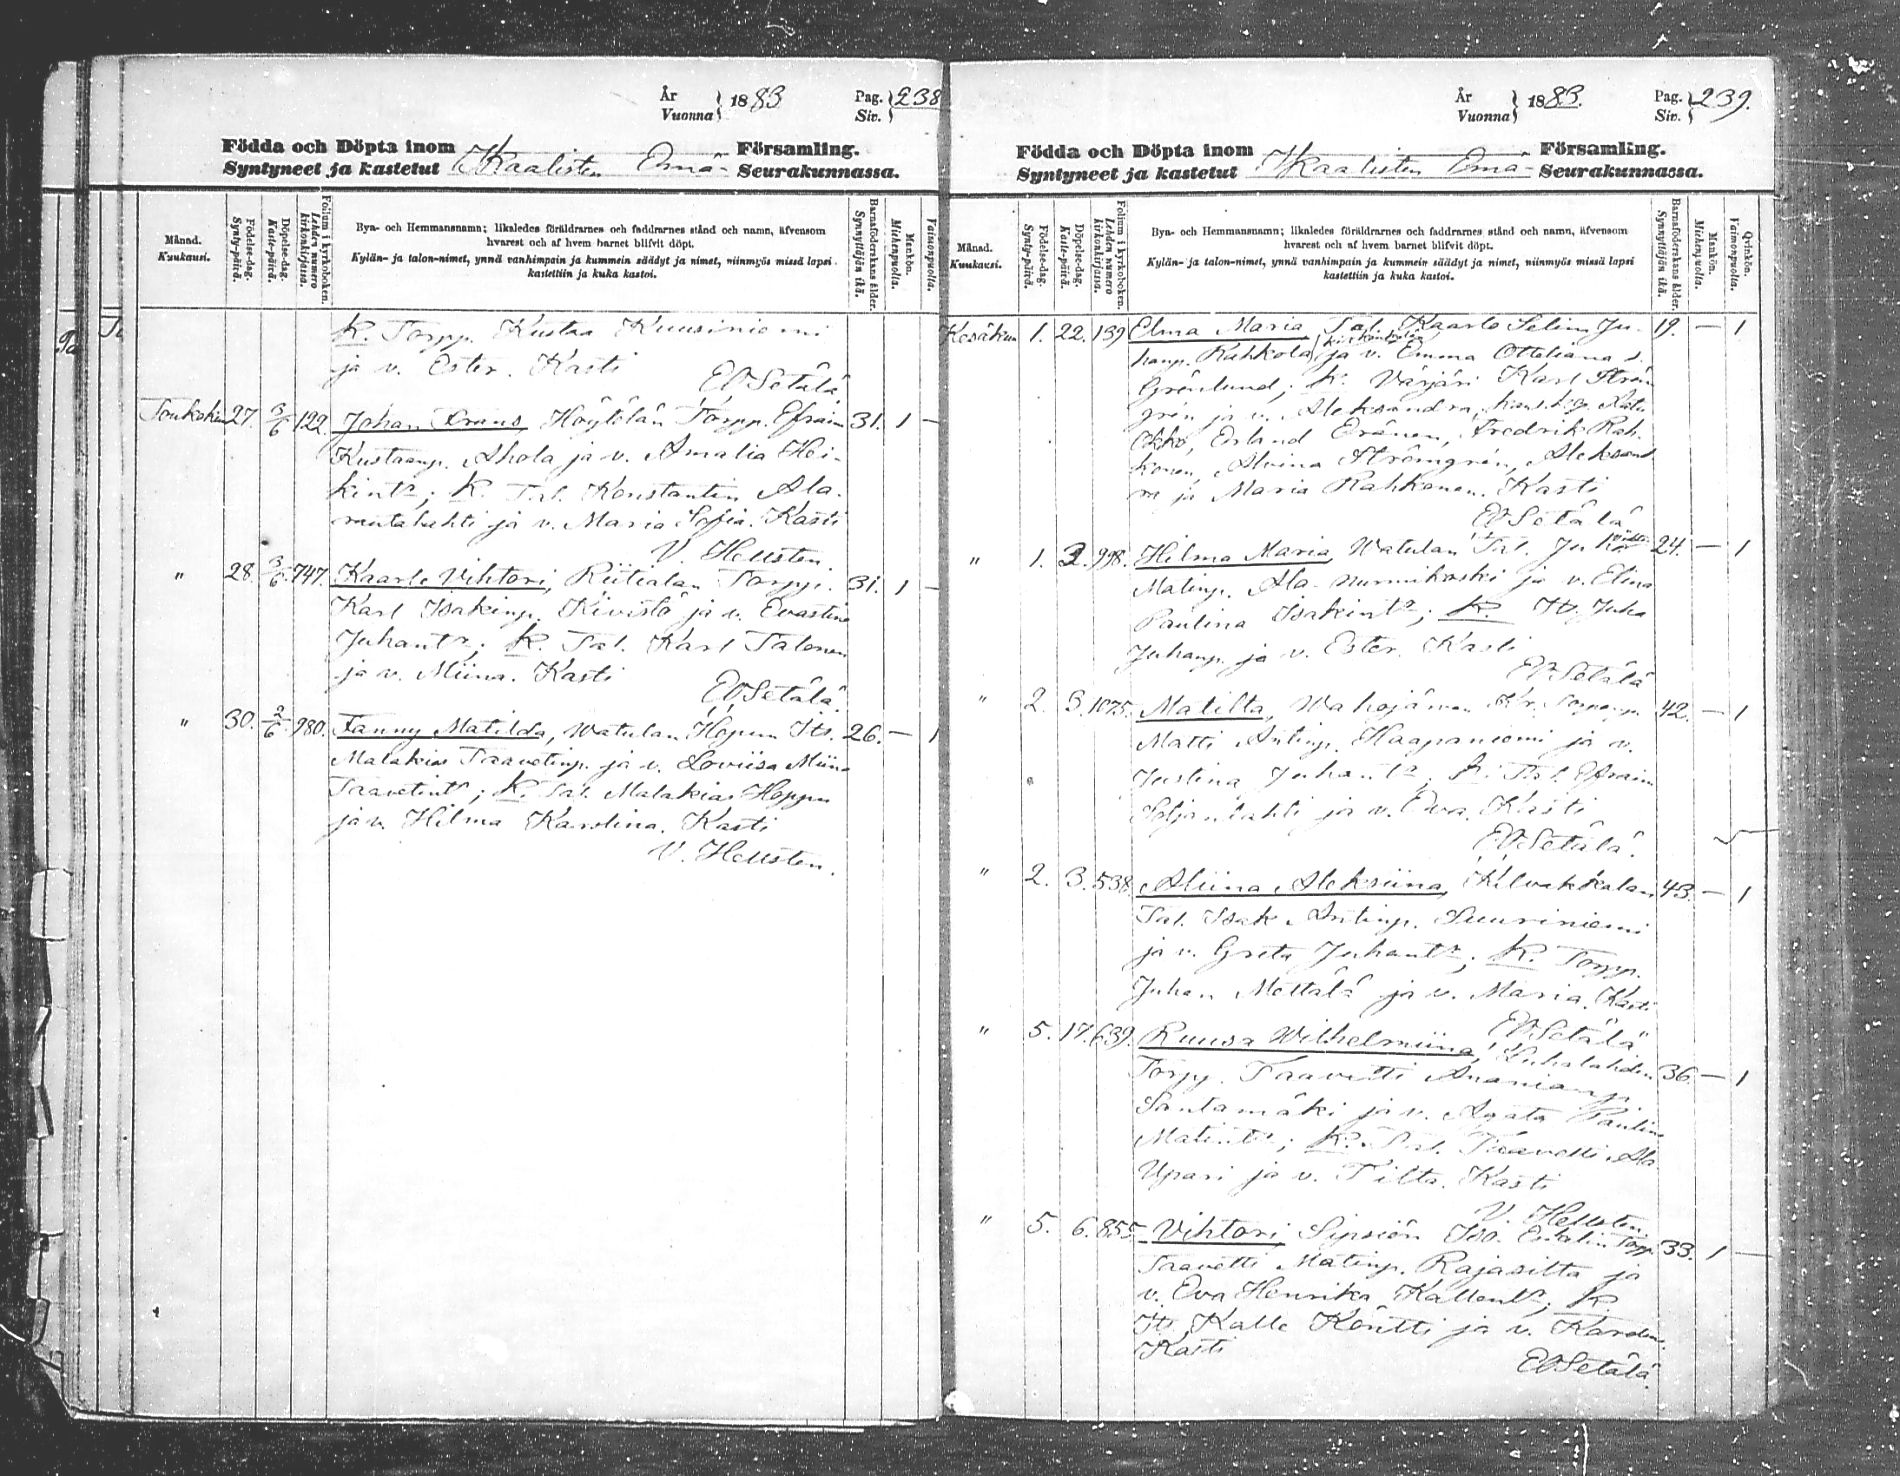 År
Vuonna } 1883 Pag.
Siv. } 238
Födda och Döpta inom Församling.
Syntyneet ja kastetut Ikaalisten Emä- Seurakunnassa.
Månad.
Kuukausi.
Födelse-dag.
Synty-päivä.
Döpelse-dag.
Kaste-päivä.
Folium i kyrkoboken.
Lehden numero kirkonkirjassa.
Bya- och Hemmansnamn; likaledes föräldrarnes och faddrarnes stånd och namn, äfvensom
hvarest och af hvem barnet blifvit döpt.
Kylän- ja talon-nimet, ynnä vanhimpain ja kummein säädyt ja nimet, niinmyös missä lapsi
kastettiin ja kuka kastoi.
Barnaföderskans ålder.
Synnyttäjän ikä.
Mankön.
Miehenpuolta.
Vaimonpuolta.
K. Torpp. Kustaa Kuusiniemi
ja v. Ester. Kasti
EOSetälä
Toukokuu 27. 3/6 122. Johan Frans, Höytölän Torpp. Efraim 31. 1 —
Kustaanp. Ahola ja v. Amalia Hei-
kint:r; K. Tal. Konstantin Ala-
rautalahti ja v. Maria Sofia. Kasti
V. Hellsten.
" 28. 3/6 747. Kaarle Vihtori, Riitialan Torpp. 31. 1 —
Karl Isakinp. Kivistö ja v. Evastina
Juhant:r; K. Tal. Karl Talonen
ja v. Miina. Kasti
EOSetälä.
" 30. 2/6 980. Fanny Matilda, Watulan Heppu Its. 26. — 1
Malakias Taavetinp. ja v. Loviisa Miina
Taavetint:r; K. Tal. Malakias Heppu
ja v. Hilma Karolina. Kasti
V. Hellsten.
År
Vuonna } 1883. Pag.
Siv. } 239.
Födda och Döpta inom Församling.
Syntyneet ja kastetut Ikaalisten Emä- Seurakunnassa.
Månad.
Kuukausi.
Födelse-dag.
Synty-päivä.
Döpelse-dag.
Kaste-päivä.
Folium i kyrkoboken.
Lehden numero kirkonkirjassa.
Bya- och Hemmansnamn; likaledes föräldrarnes och faddrarnes stånd och namn, äfvensom
hvarest och af hvem barnet blifvit döpt.
Kylän- ja talon-nimet, ynnä vanhimpain ja kummein säädyt ja nimet, niinmyös missä lapsi
kastettiin ja kuka kastoi.
Barnaföderskans ålder.
Synnyttäjän ikä.
Mankön.
Miehenpuolta.
Qvinkön.
Vaimonpuolta.
Kesäkuu 1. 22. 139 Elma Maria, Tal. Kaarlo Selim Ju- 19. — 1
hanp. Rahkola, ja v. Emma Otteliana s.
Grönlund; K. Värjäri Karl Ström
grén ja v. Aleksandra,
Erland Fredrik Rah-
konen, Alvina Strömgrén, Aleksand
ra ja Maria Rahkonen. Kasti
EOSetälä
" 1. 3. 998. Hilma Maria, Watulan Tal. Juho 24. — 1
Matinp. Ala-nurmikoski ja v. Elina
Paulina Isakint:r; K. It. Juha
Juhanp. ja v. Ester. Kasti
EOSetälä
" 2. 3. 1075. Matilta, Wahojärven Kr. Torppp. 42. — 1
Matti Antinp. Haapaniemi ja v.
Justina Juhant:r; K. Tal. Efraim
ja v. Eva. Kasti
EOSetälä.
" 2. 3. 538 Aliina Aleksiina, Kilvakkalan 43. — 1
Tal. Isak Antinp. Suuriniemi
ja v. Greta Juhant:r; K. Torpp.
Juhan Mettälä ja v. Maria. Kasti
EOSetälä
" 5. 17. 639. Ruusa Wilhelmiina, Luhalahden 36. — 1
Torpp. Taavetti Ananianp.
Santamäki ja v. Agata Paulina
Matint:r; K. Tal. Taavetti Ala
Upari ja v. Tilta. Kasti
V. Hellsten
" 5. 6. 855. Vihtori, Sipsiön Iso. Torpp. 33. 1 —
Taavetti Matinp. Rajasilta ja
v. Eva Henrika Kallent:r; K.
Its. Kalle Köntti ja v. Karolina.
Kasti
EOSetälä.